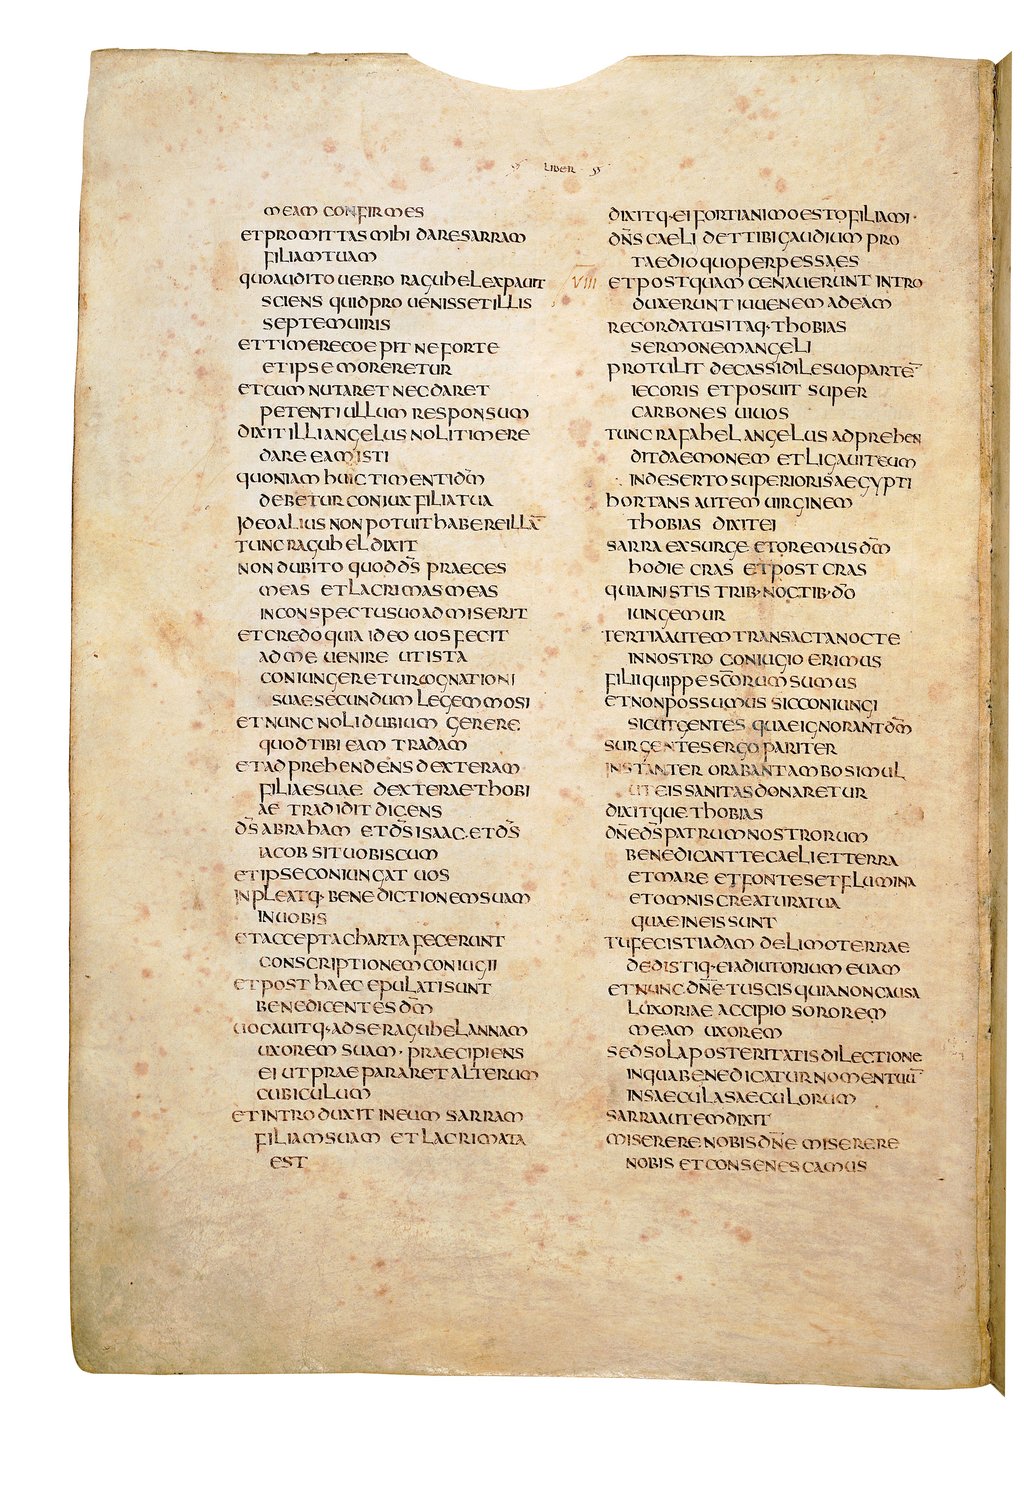 LIBER
MEAM CONFIRMES
ETPROMITTAS MIHI DARESARRAM
FILIAMTUAM
QUOAUDITO UERBO RAGUHELEXPAUIT
SCIENS QUIDPRO UENISSETILLIS
SEPTEMUIRIS
ETTIMERECOEPIT NEFORTE
ETIPSEMORERETUR
ETCUM NUTARET NECDARET
PETENTI ULLUM RESPONSUM
DIXIT ILLIANGELUS NOLITIMERE
DARE EAM ISTI
QUONIAM HUIC TIMENTIDM̄
DEBETUR CONIUX FILIATUA
IDEOALIUS NON POTUIT HABEREILLĀ
TUNC RAGUHEL DIXIT
NON DUBITO QUOD DS̄ PRAECES
MEAS ETLACRIMASMEAS
INCONSPECTUSUOADMISERIT
ETCREDO QUIA IDEO UOS FECIT
ADME UENIRE UTISTA
CONIUNGERETURCOGNATIONI
SUAESECUNDUM LEGEMMOSI
ETNUNC NOLIDUBIUM GERERE
QUODTIBI EAM TRADAM
ETADPREHENDENS DEXTERAM
FILIAESUAE DEXTERAETHOBI
AE TRADIDIT DICENS
DS̄ ABRAHAM ETDS̄ISAAC·ETDS̄
IACOB SIT UOBISCUM
ETIPSECONIUNGAT UOS
INPLEATQ· BENEDICTIONEMSUAM
INUOBIS
ETACCEPTACHARTA FECERUNT
CONSCRIPTIONEM CONIUGII
ETPOST HAEC EPULATISUNT
BENEDICENTES DM̄
UOCAUITQ·ADSERAGUHELANNAM
UXOREM SUAM· PRAECIPIENS
EI UTPRAEPARARET ALTERUM
CUBICULUM
ETINTRODUXIT INEUM SARRAM
FILIAMSUAM ETLACRIMATA
EST
DIXITQ·EI FORTIANIMOESTOFILIAMI·
DN̄S CAELI DETTIBIGAUDIUM PRO
TAEDIOQUOPERPESSAES
VIII ETPOSTQUAM CENAUERUNT INTRO
DUXERUNT IUUENEM ADEAM
RECORDATUSITAQ·THOBIAS
SERMONEMANGELI
PROTULIT DECASSIDILESUOPARTĒ
IECORIS ETPOSUIT SUPER
CARBONES UIUOS
TUNC RAFAHEL ANGELUS ADPREHEN
DITDAEMONEM ETLIGAUITEUM
INDESERTOSUPERIORISAEGYPTI
HORTANS AUTEM UIRGINEM
THOBIAS DIXITEI
SARRA EXSURGE ETOREMUSDM̄
HODIE CRAS ETPOST CRAS
QUIAINISTIS TRIB·NOCTIB·DŌ
IUNGEMUR
TERTIAAUTEM TRANSACTANOCTE
INNOSTRO CONIUGIO ERIMUS
FILIIQUIPPESC̄ORUMSUMUS
ETNONPOSSUMUS SICCONIUNGI
SICUTGENTES QUAEIGNORANTDM̄
SURGENTESERGO PARITER
INSTANTER ORABANTAMBOSIMUL
UTEISSANITASDONARETUR
DIXITQUETHOBIAS
DN̄EDS̄PATRUMNOSTRORUM
BENEDICANTTECAELIETTERRA
ETMARE ETFONTESETFLUMINA
ETOMNISCREATURATUA
QUAEINEISSUNT
TUFECISTIADAM DELIMOTERRAE
DEDISTIQ·EIADIUTORIUM EUAM
ETNUNC DN̄ETUSCISQUIANONCAUSA
LUXORIAE ACCIPIO SOROREM
MEAM UXOREM
SEDSOLAPOSTERITATISDILECTIONE
INQUABENEDICATURNOMENTUŪ
INSAECULASAECULORUM
SARRAAUTEMDIXIT
MISERERENOBISDN̄E MISERERE
NOBIS ETCONSENESCAMUS